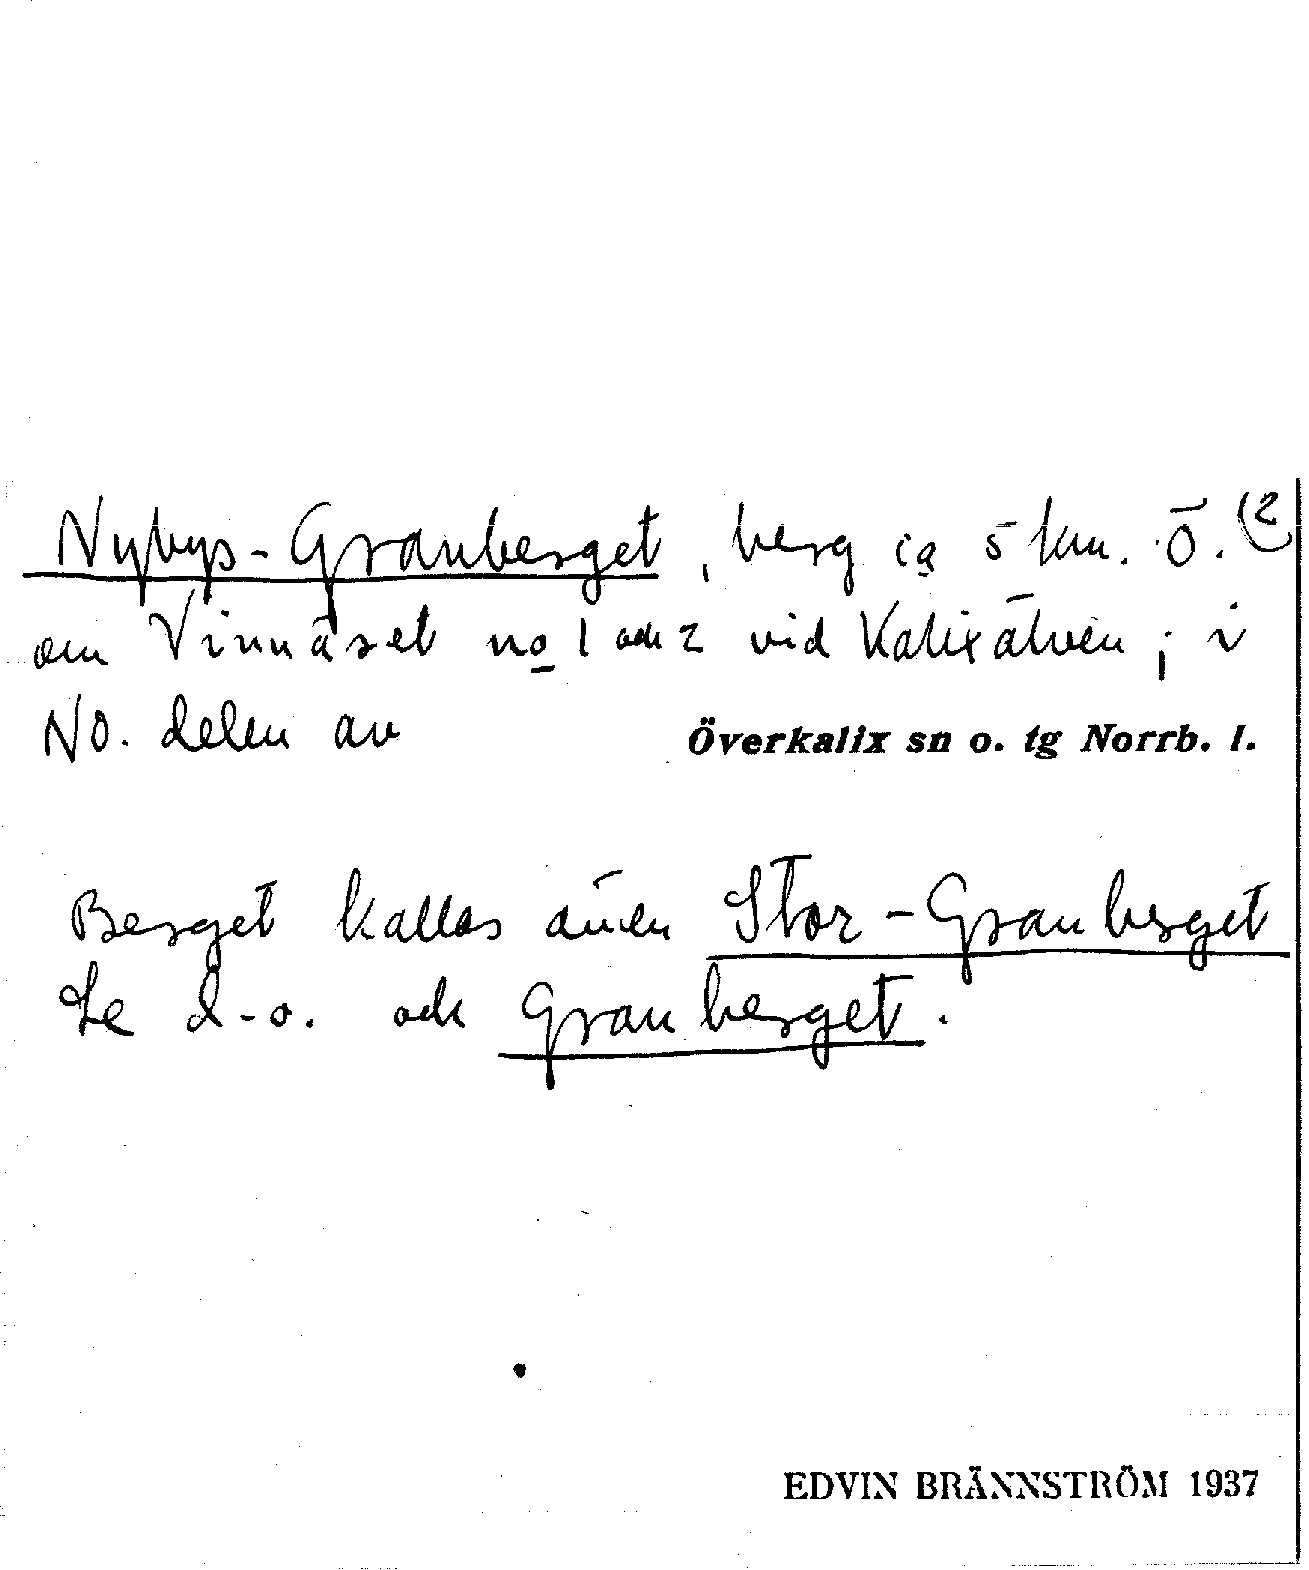 Nybys-Granberget, berg ca 5 km. Ö. (2
om Vinnäset no 1 och 2 vid Kalixälven; i
NO. delen av Överkalix sn o. tg Norrb. l.
Berget kallas även Stor-Granberget
Se d-o. och Granberget.
EDVIN BRÄNNSTRÖM 1937